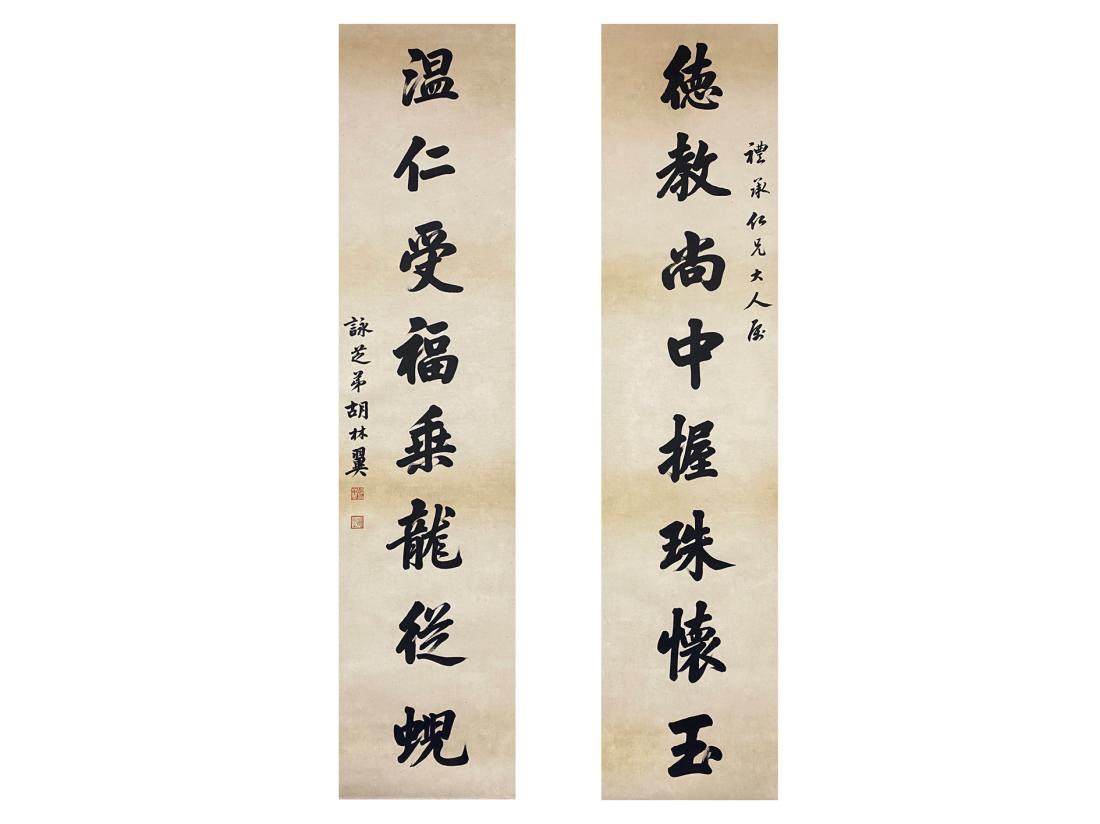 禮承仁兄大人属
德教尚中握珠懷玉
温仁受福乘龍從蜺
詠芝弟胡林翼